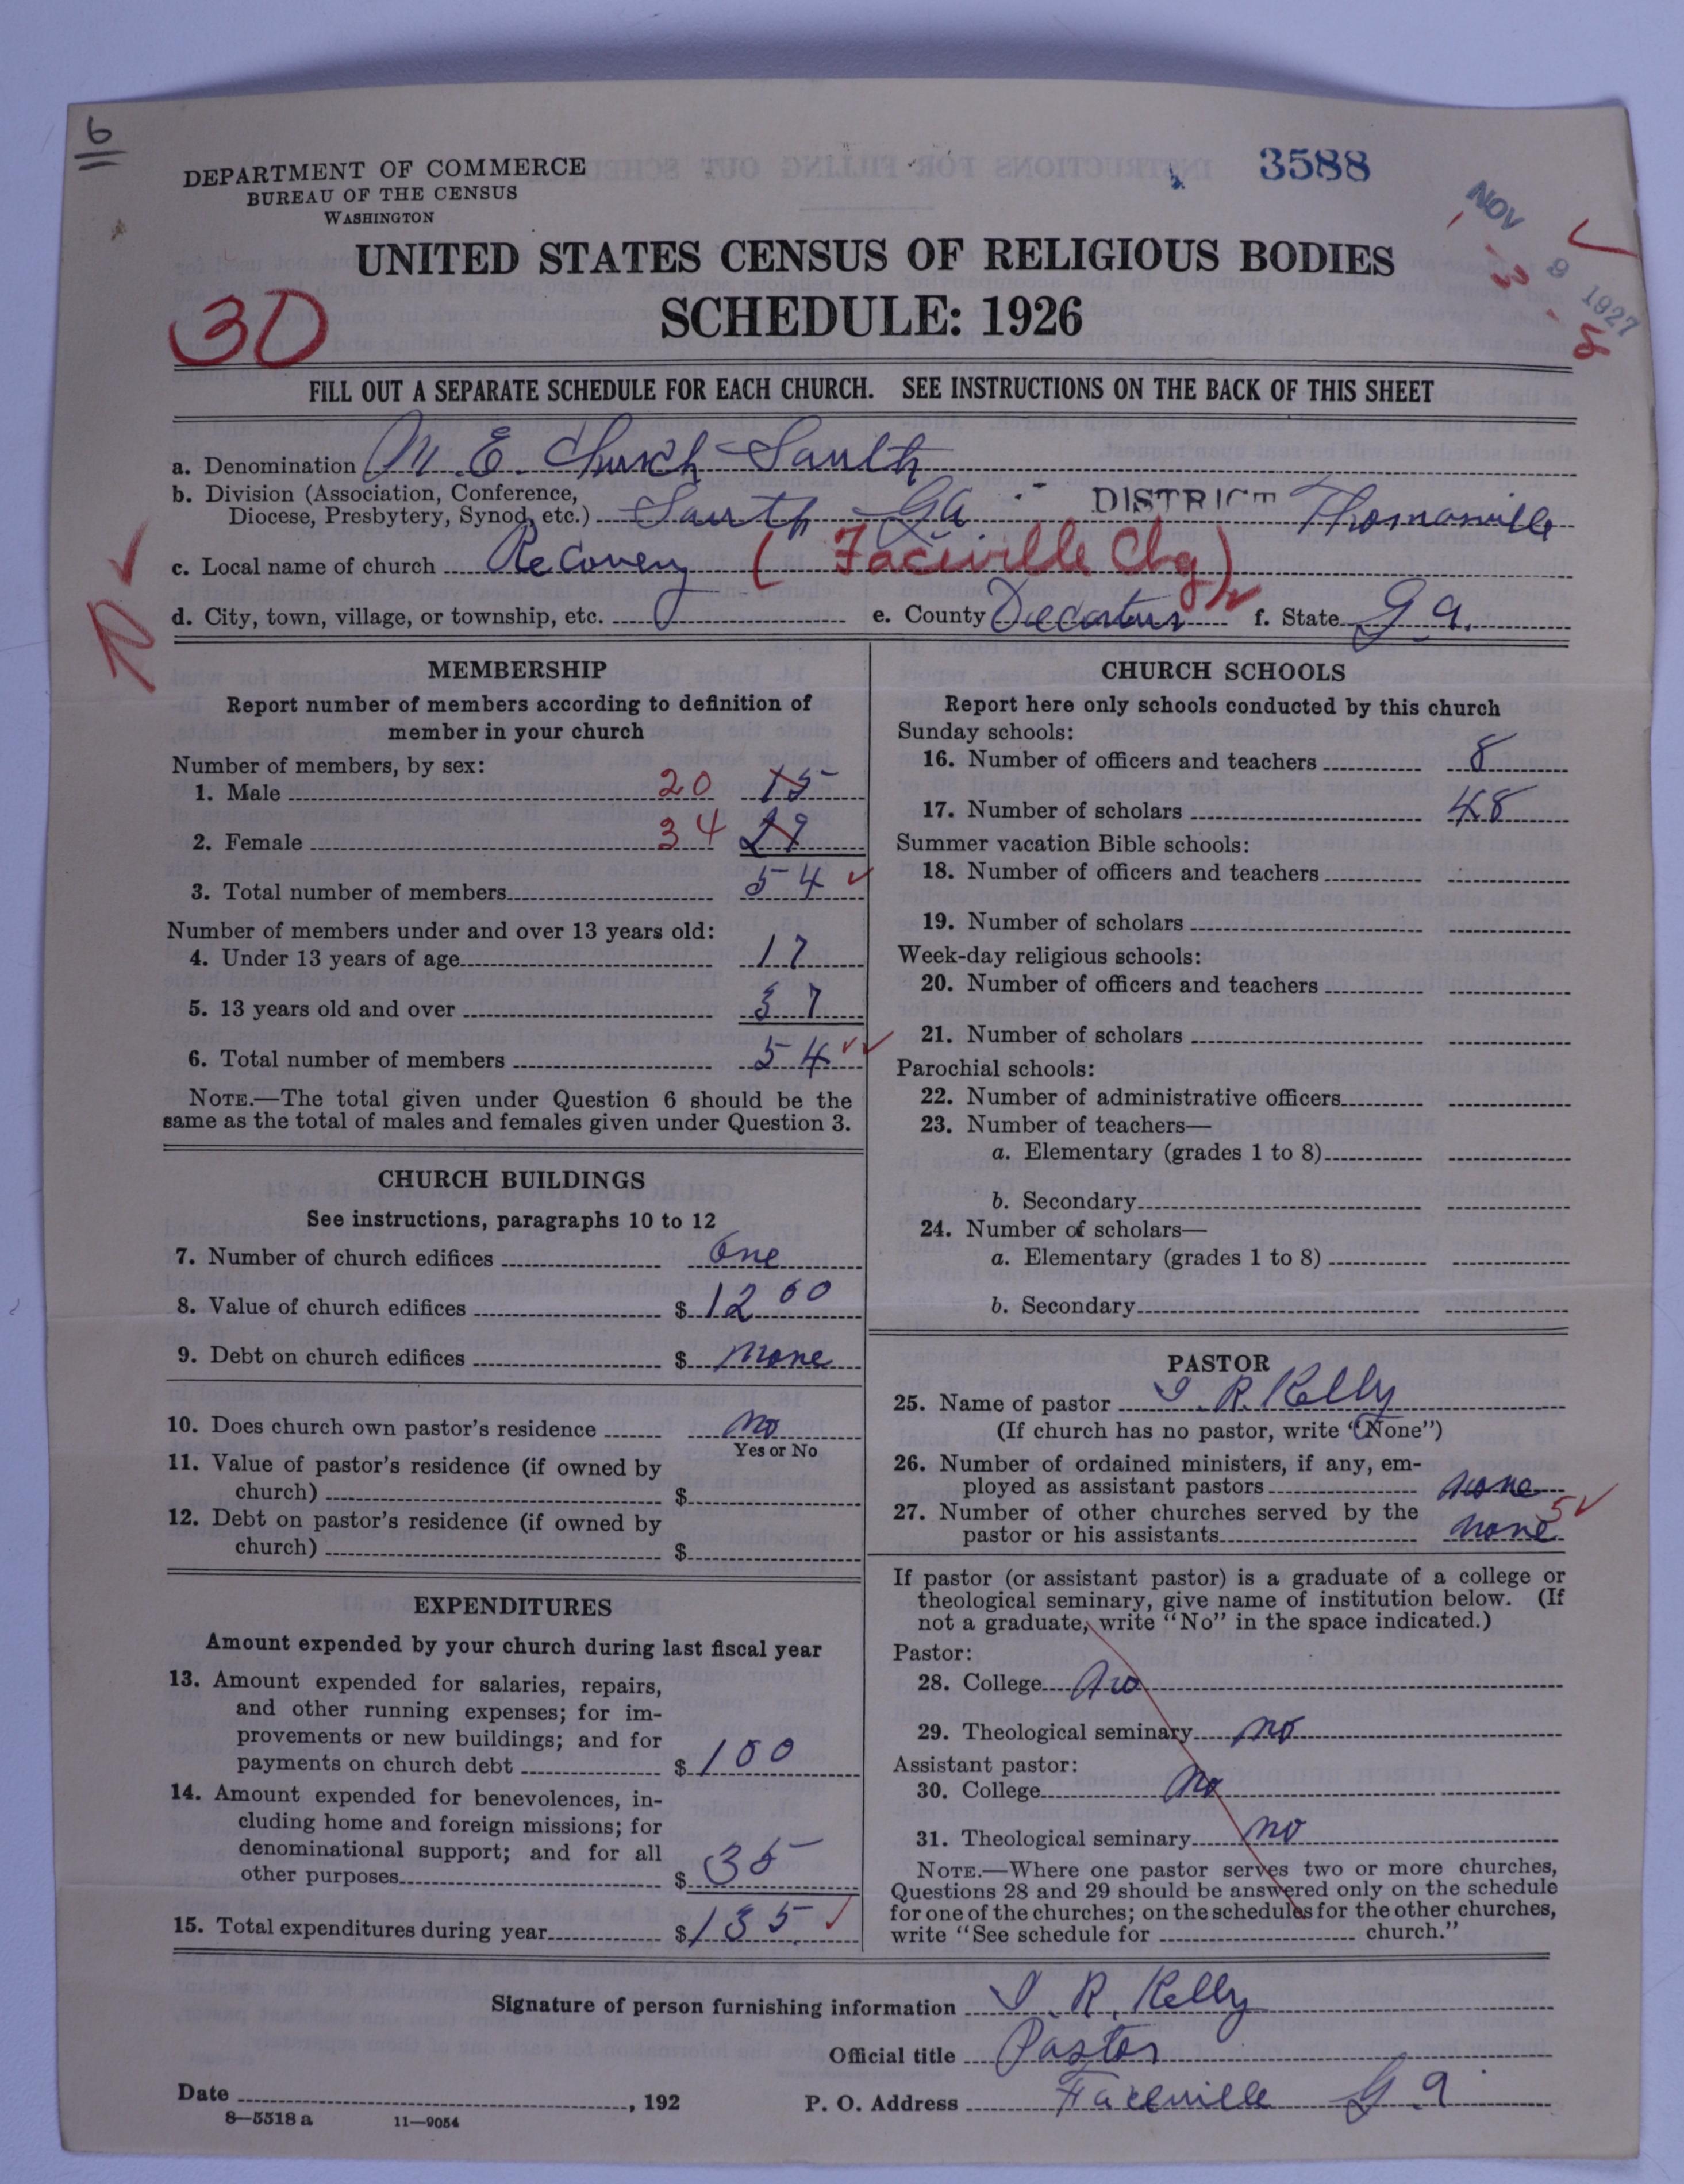 6
DEPARTMENT OF COMMERCE
BUREAU OF THE CENSUS
WASHINGTON
3588
NOV 9 1927
UNITED STATES CENSUS OF RELIGIOUS BODIES
SCHEDULE: 1926
30
FILL OUT A SEPARATE SCHEDULE FOR EACH CHURCH. SEE INSTRUCTIONS ON THE BACK OF THIS SHEET
a. Denomination M. E. Church South
b. Division (Association, Conference,
Diocese, Presbytery, Synod, etc.) South Ga DISTRICT Thomasville
c. Local name of church Recovery (Faceville Chg)
d. City, town, village, or township, etc. e. County Decatur f. State Ga.
MEMBERSHIP
Report number of members according to definition of
member in your church
Number of members, by sex:
1. Male 20 15
2. Female 34 29
3. Total number of members 54
Number of members under and over 13 years old:
4. Under 13 years of age 17
5. 13 years old and over 37
6. Total number of members 54
NOTE.—The total given under Question 6 should be the
same as the total of males and females given under Question 3.
CHURCH BUILDINGS
See instructions, paragraphs 10 to 12
7. Number of church edifices One
8. Value of church edifices $ 1200
9. Debt on church edifices $ None
10. Does church own pastor's residence No
Yes or No
11. Value of pastor's residence (if owned by
church) $
12. Debt on pastor's residence (if owned by
church) $
EXPENDITURES
Amount expended by your church during last fiscal year
13. Amount expended for salaries, repairs,
and other running expenses; for im-
provements or new buildings; and for
payments on church debt $ 100
14. Amount expended for benevolences, in-
cluding home and foreign missions; for
denominational support; and for all
other purposes $ 35
15. Total expenditures during year $ 135
CHURCH SCHOOLS
Report here only schools conducted by this church
Sunday schools:
16. Number of officers and teachers 8
17. Number of scholars 48
Summer vacation Bible schools:
18. Number of officers and teachers
19. Number of scholars
Week-day religious schools:
20. Number of officers and teachers
21. Number of scholars
Parochial schools:
22. Number of administrative officers
23. Number of teachers—
a. Elementary (grades 1 to 8)
b. Secondary
24. Number of scholars—
a. Elementary (grades 1 to 8)
b. Secondary
PASTOR
25. Name of pastor I. R. Kelly
(If church has no pastor, write "None")
26. Number of ordained ministers, if any, em-
ployed as assistant pastors none
27. Number of other churches served by the
pastor or his assistants none 5
If pastor (or assistant pastor) is a graduate of a college or
theological seminary, give name of institution below. (If
not a graduate, write "No" in the space indicated.)
Pastor:
28. College No
29. Theological seminary no
Assistant pastor:
30. College No
31. Theological seminary no
NOTE.—Where one pastor serves two or more churches,
Questions 28 and 29 should be answered only on the schedule
for one of the churches; on the schedules for the other churches,
write "See schedule for church."
Signature of person furnishing information I. R. Kelly
Official title Pastor
Date , 192 P. O. Address Faceville Ga
8—5518 a 11—9054